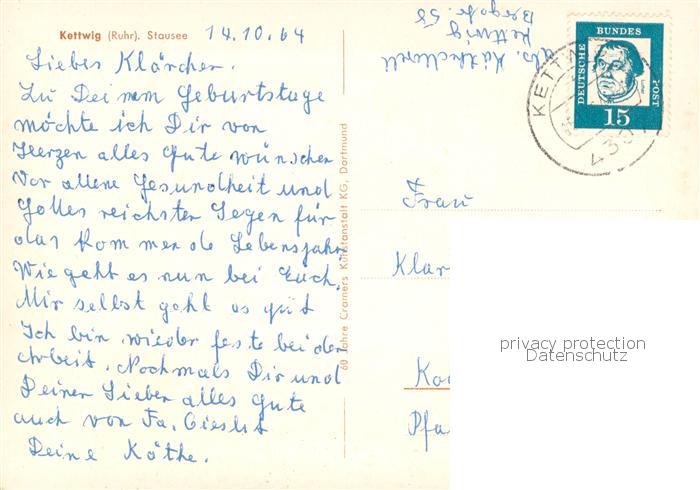 Kettwig (Ruhr). Stausee
14.10.64
Liebes Klärchen.
Zu Deinem Geburtstage
möchte ich Dir von
Herzen alles Gute wünschen
Vor allem Gesundheit und
Gottes reichster Segen für
das kommende Lebensjahr.
Wie geht es nun bei Euch.
Mir selbst geht es gut
Ich bin wieder feste bei der
Arbeit. Nochmals Dir und
Deinen Lieben alles Gute
auch von Fa.
Deine Käthe.
60 Jahre Cramers Kunstanstalt KG, Dortmund
Abs.
Kettwig
58
DEUTSCHE BUNDESPOST
15
KETTW
Frau
Klar
Ko
Pfa
privacy protection
Datenschutz